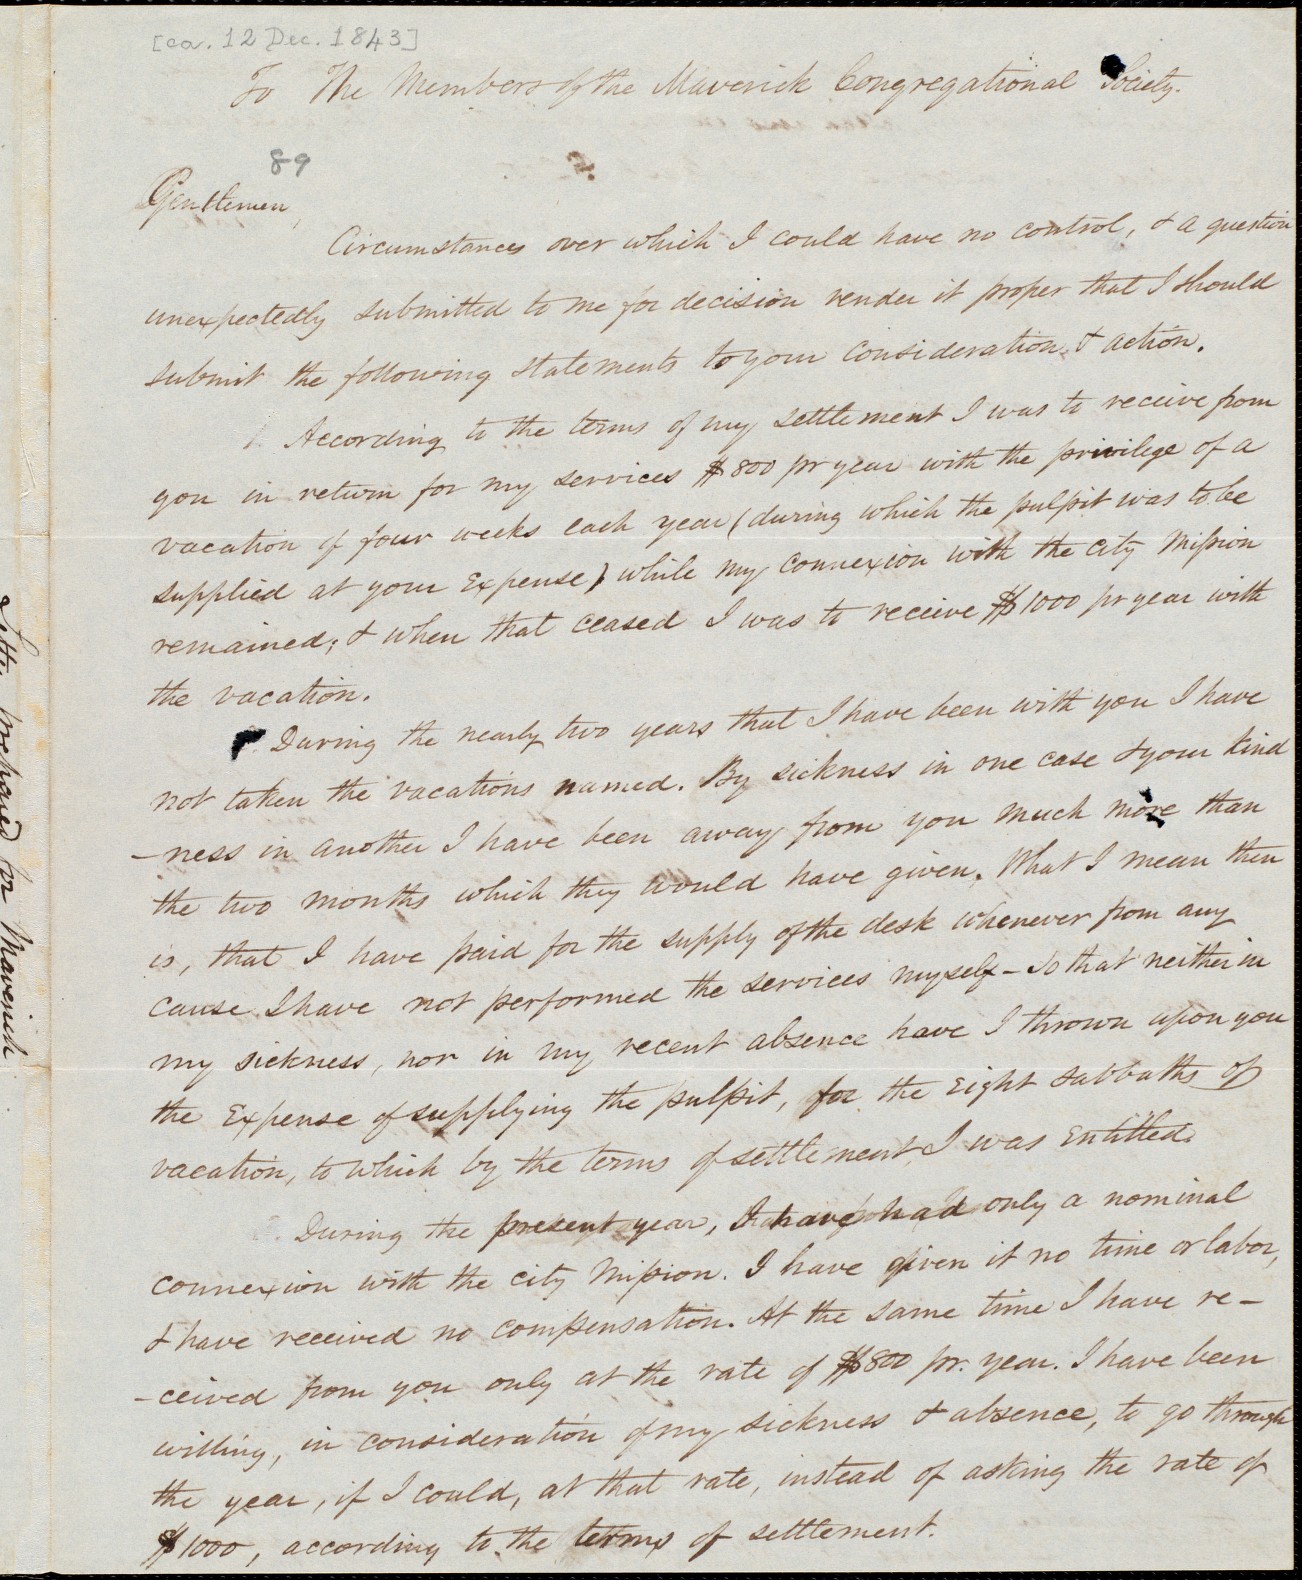 [ca. 12 Dec. 1843]
To The Members of the Maverick Congregational Society.
89
Gentlemen,
Circumstances over which I could have no control, & a question
unexpectedly submitted to me for decision render it proper that I should
submit the following statements to your consideration & action.
1. According to the terms of my settlement I was to receive from
you in return for my services $800 pr year with the privilege of a
vacation of four weeks each year (during which the pulpit was to be
supplied at your expense) while my connexion with the city Mission
remained; & when that ceased I was to receive $1000 pr year with
the vacation.
During the nearly two years that I have been with you I have
not taken the vacations named. By sickness in one case & your kind
-ness in another I have been away from you much more than
the two months which they would have given. What I mean then
is, that I have paid for the supply of the desk whenever from any
cause I have not performed the services myself - so that neither in
my sickness, nor in my recent absence have I thrown upon you
the expense of supplying the pulpit, for the eight sabbaths of
vacation, to which by the terms of settlement I was entitled.
During the present year, I have had only a nominal
connexion with the city Mission. I have given it no time or labor,
& have received no compensation. At the same time I have re-
-ceived from you only at the rate of $800 pr. year. I have been
willing, in consideration of my sickness & absence, to go through
the year, if I could, at that rate, instead of asking the rate of
$1000, according to the terms of settlement.
Letter prepared for Maverick